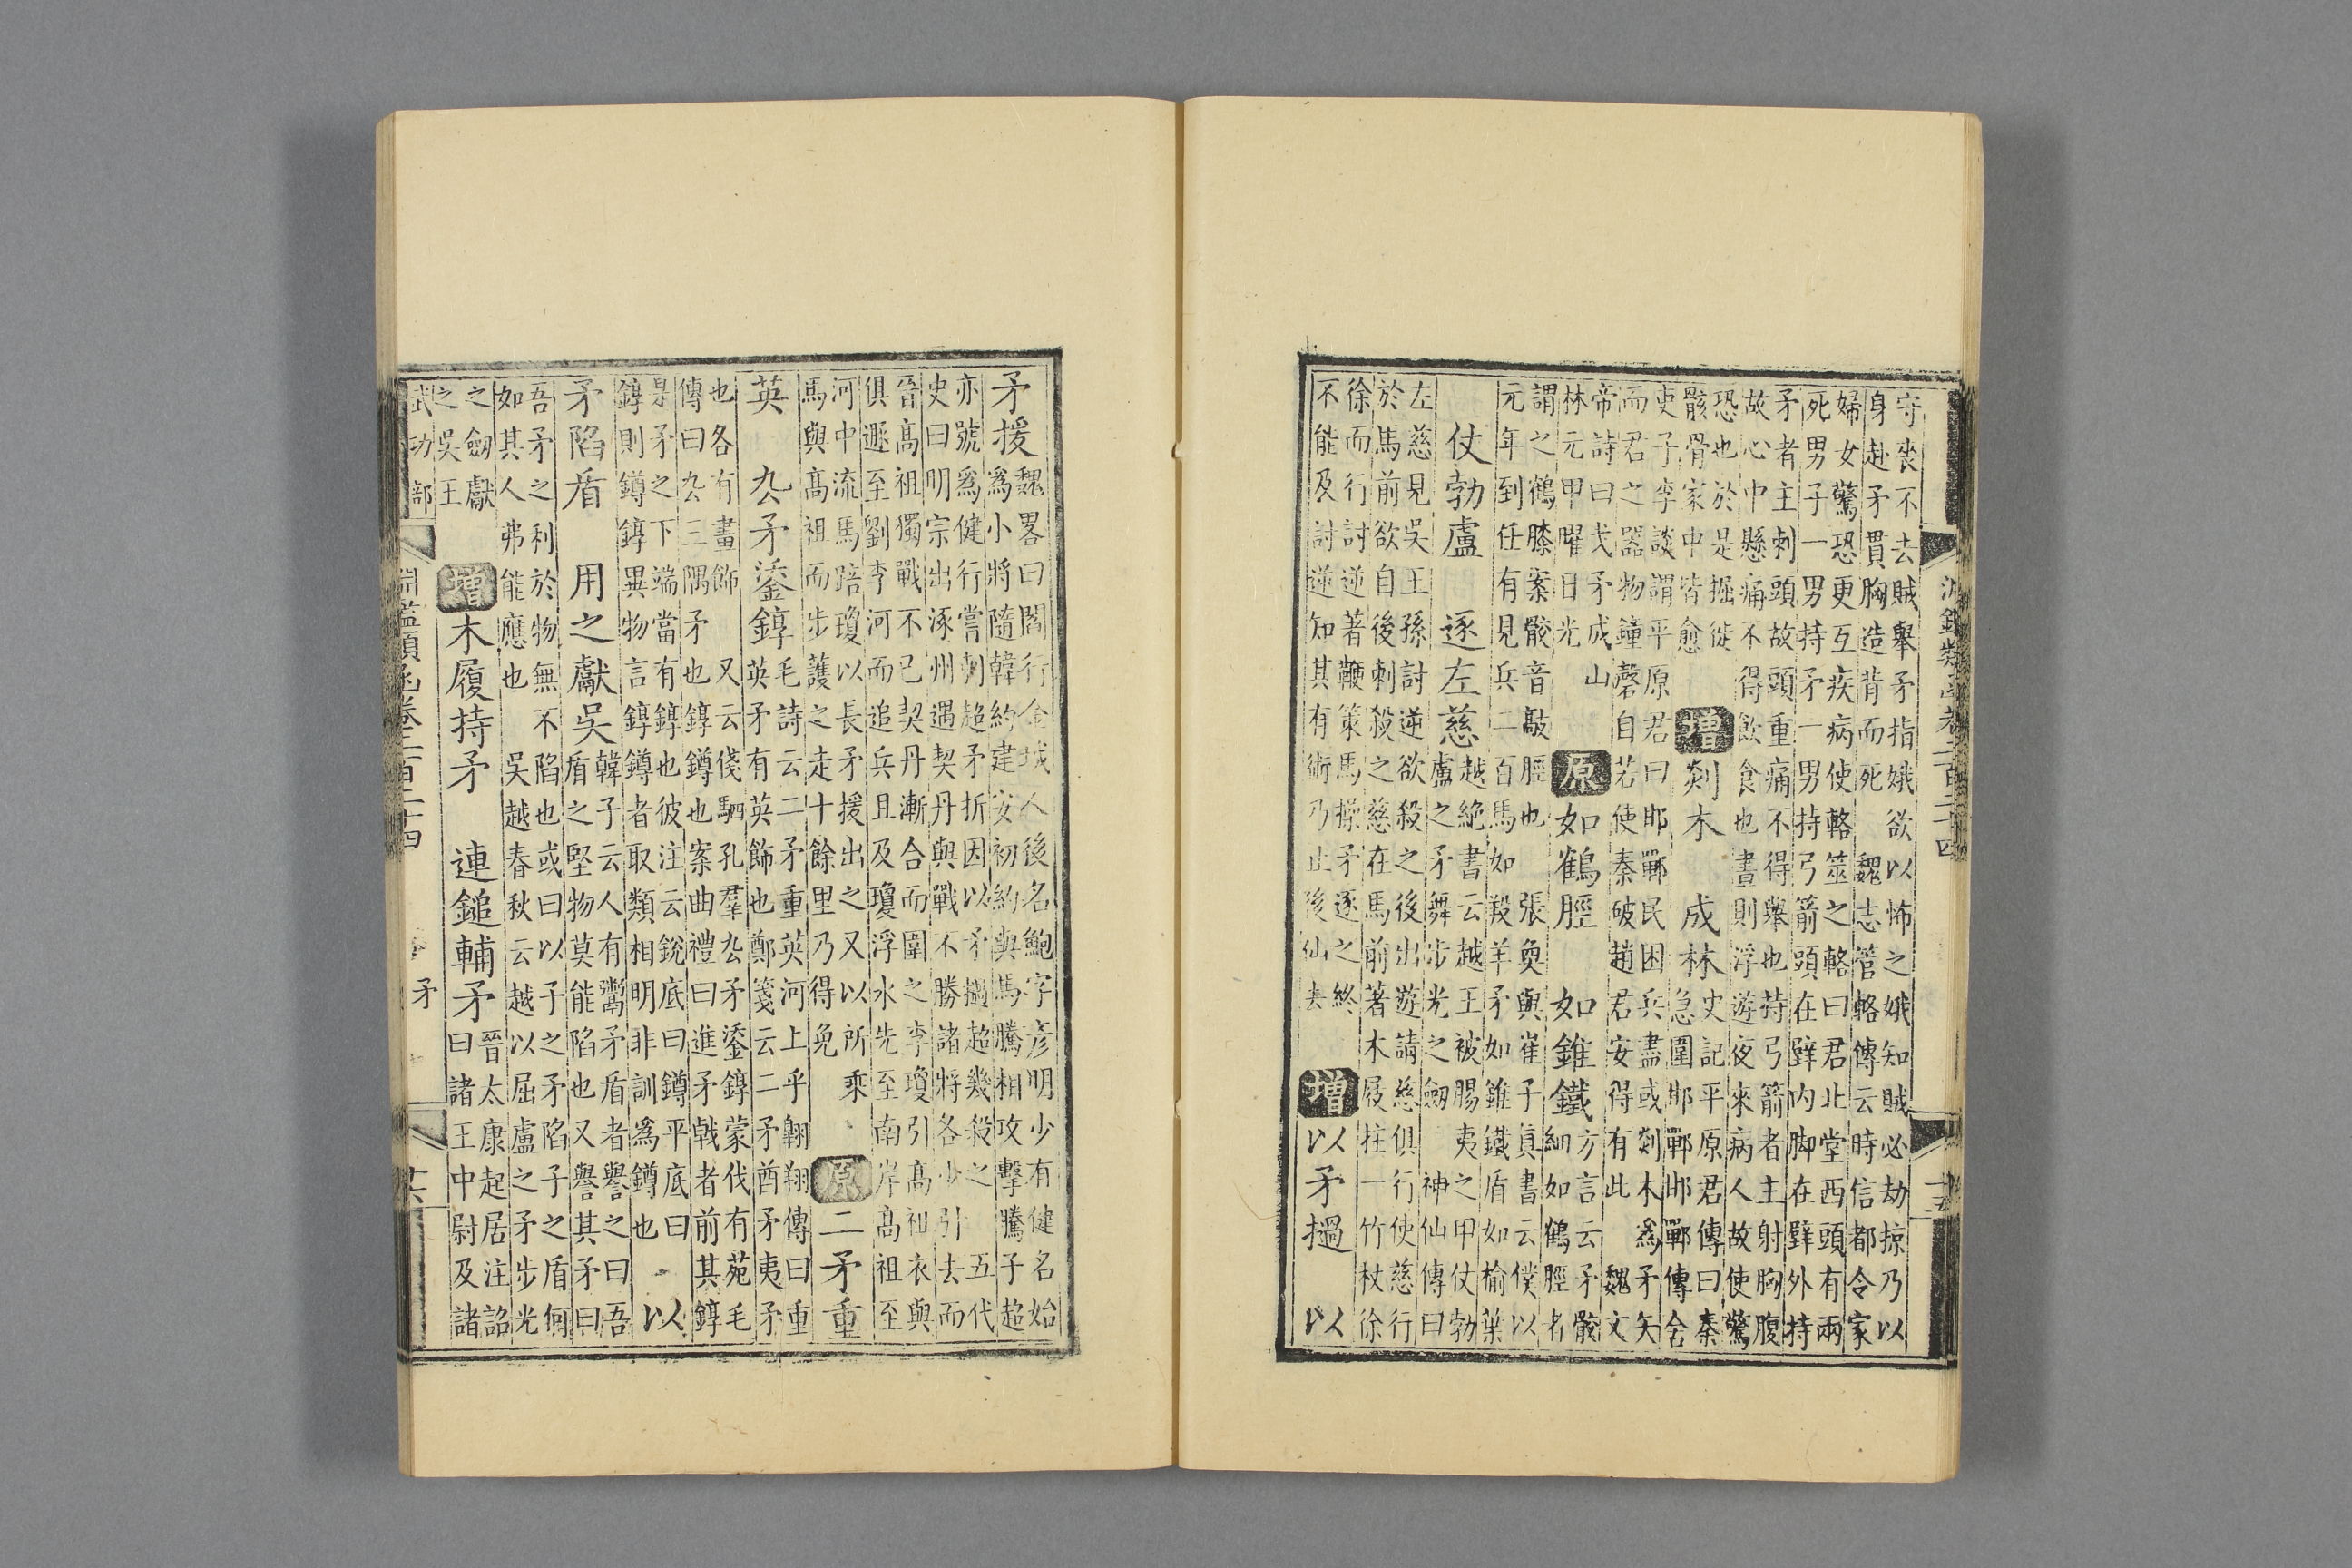 守喪不去賊舉矛指娥欲以怖之娥知賊必劫掠乃以
身赴矛貫胸造背而死 魏志管輅傳云時信都令家
婦女驚恐更互疾病使輅筮之輅曰君北堂西頭有兩
死男子一男持矛一男持弓箭頭在壁內脚在壁外持
矛者主刺頭故頭重痛不得舉也持弓箭者主射胸腹
故心中懸痛不得飲食也晝則浮遊夜來病人故使驚
恐也於是掘徙
骸骨家中皆愈
增 剡木 成林
史記平原君傳曰秦
急圍邯鄲邯鄲傳舍
吏子李談謂平原君曰邯鄲民困兵盡或剡木爲矛矢
而君之器物鐘磬自若使秦破趙君安得有此 魏文
帝詩曰戈矛成山
林元甲曜日光
原 如鶴脛 如錐鐵
方言云矛骹
細如鶴脛者
謂之鶴膝案骹音敲脛也 張奐與崔子眞書云僕以
元年到任有見兵二百馬如羖羊矛如錐鐵盾如榆葉
仗勃盧 逐左慈
越絕書云越王被賜夷之甲仗勃
盧之矛舞步光之劒 神仙傳曰
左慈見吳王孫討逆欲殺之後出遊請慈俱行使慈行
於馬前欲自後刺殺之慈在馬前著木屐拄一竹杖徐
徐而行討逆著鞭策馬操矛逐之終
不能及討逆知其有術乃止後仙去
增 以矛撾 以
淵鑑類函卷二百二十四
十五
矛援
魏畧曰閻行金城人後名鮑字彥明少有健名始
爲小將隨韓約建安初約與馬騰相攻擊騰子超
亦號爲健行嘗刺超矛折因以矛撾超幾殺之 五代
史曰明宗出涿州遇契丹與戰不勝諸將各少引去而
晉高祖獨戰不已契丹漸合而圍之李瓊引高祖衣與
俱遯至劉李河而追兵且及瓊浮水先至南岸高祖至
河中流馬踣瓊以長矛援出之又以所乘
馬與高祖而步護之走十餘里乃得免
原 二矛重
英 厹矛鋈錞
毛詩云二矛重英河上乎翱翔傳曰重
英矛有英飾也鄭箋云二矛酋矛夷矛
也各有畫飾 又云俴駟孔羣厹矛鋈錞蒙伐有苑毛
傳曰厹三隅矛也錞鐏也案曲禮曰進矛戟者前其錞
是矛之下端當有錞也彼注云銳底曰鐏平底曰
錞則鐏錞異物言錞鐏者取類相明非訓爲鐏也
以
矛陷盾 用之獻吳
韓子云人有鬻矛盾者譽之曰吾
盾之堅物莫能陷也又譽其矛曰
吾矛之利於物無不陷也或曰以子之矛陷子之盾何
如其人弗能應也 吳越春秋云越以屈盧之矛步光
之劒獻
之吳王
增 木履持矛 連鎚輔矛
晉太康起居注詔
曰諸王中尉及諸
武功部
淵鑑類函卷二百二十四
矛
十六